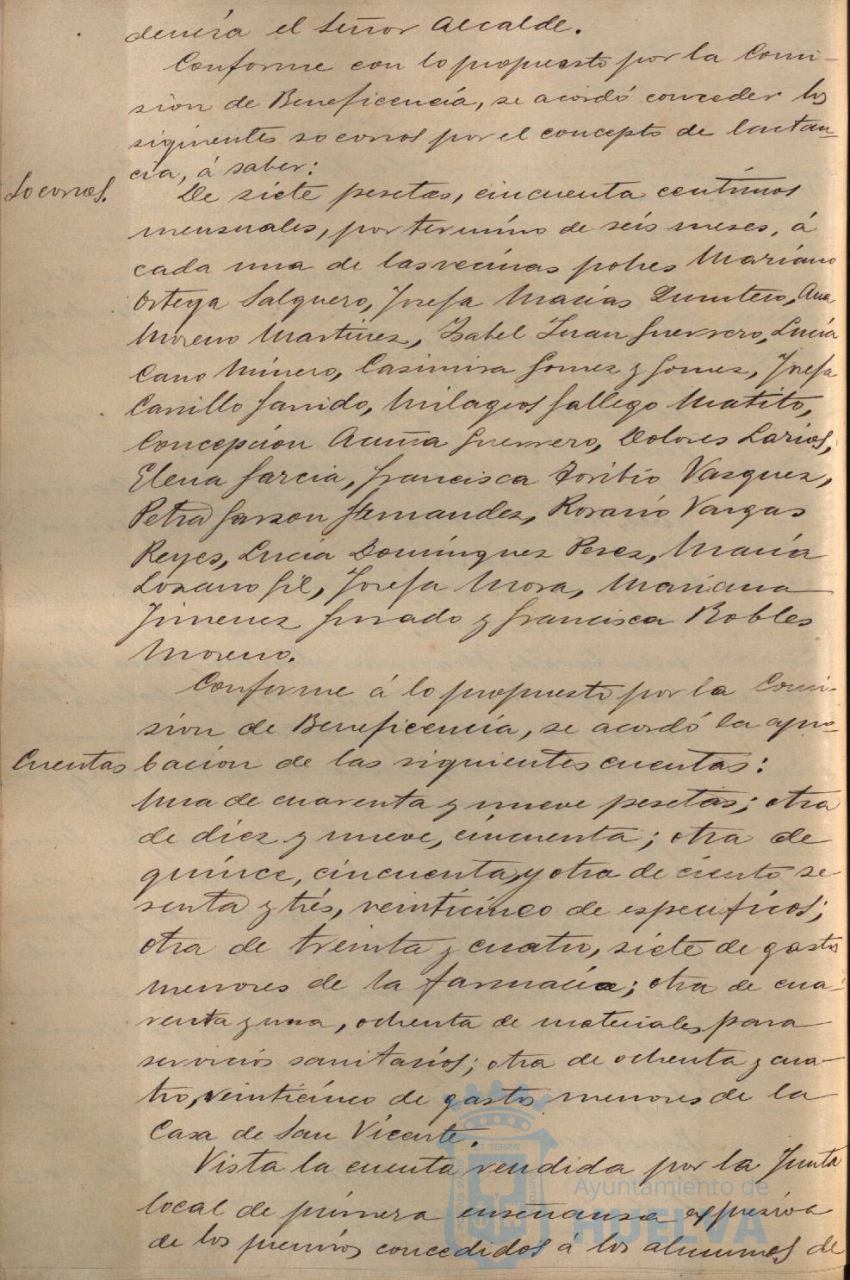 denúa el Señor Alcalde.
Conforme con lo propuesto por la Comi-
sion de Beneficencia, se acordó conceder los
siguientes socorros por el concepto de lactan-
cia, á saber:
Socorros.
De siete pesetas, cincuenta centimos
mensuales, por termino de seis meses, á
cada una de las vecinas pobres Mariano
Ortega Salguero, Josefa Macias Quintero, Ana
Moreno Martinez, Isabel Juan Guerrero, Lucia
Cano Minero, Casimira Gomez y Gomez, Josefa
Carrillo Garrido, Milagros Gallego Matito,
Concepcion Acuña Guerrero, Dolores Larios,
Elena Garcia, Francisca Toribio Vazquez,
Petra Garzon Fernandez, Rosario Vargas
Reyes, Lucia Domínguez Perez, María
Lozano Gil, Josefa Mora, Mariana
Jimenez Jurado y Francisca Robles
Moreno.
Conforme á lo propuesto por la Comi-
sion de Beneficencia, se acordó la apro-
Cuentas
bacion de las siguientes cuentas:
Una de cuarenta y nueve pesetas; otra
de diez y nueve, cincuenta; otra de
quince, cincuenta, y otra de ciento se-
senta y trés, veinticinco de especificos;
otra de treinta y cuatro, siete de gastos
menores de la farmacia; otra de cua-
renta y una, ochenta de materiales para
servicios sanitarios; otra de ochenta y cua-
tro, veinticinco de gastos menores de la
Casa de San Vicente.
Vista la cuenta rendida por la Junta
local de primera enseñanza expresiva
de los premios concedidos á los alumnos de
Ayuntamiento de
HUELVA